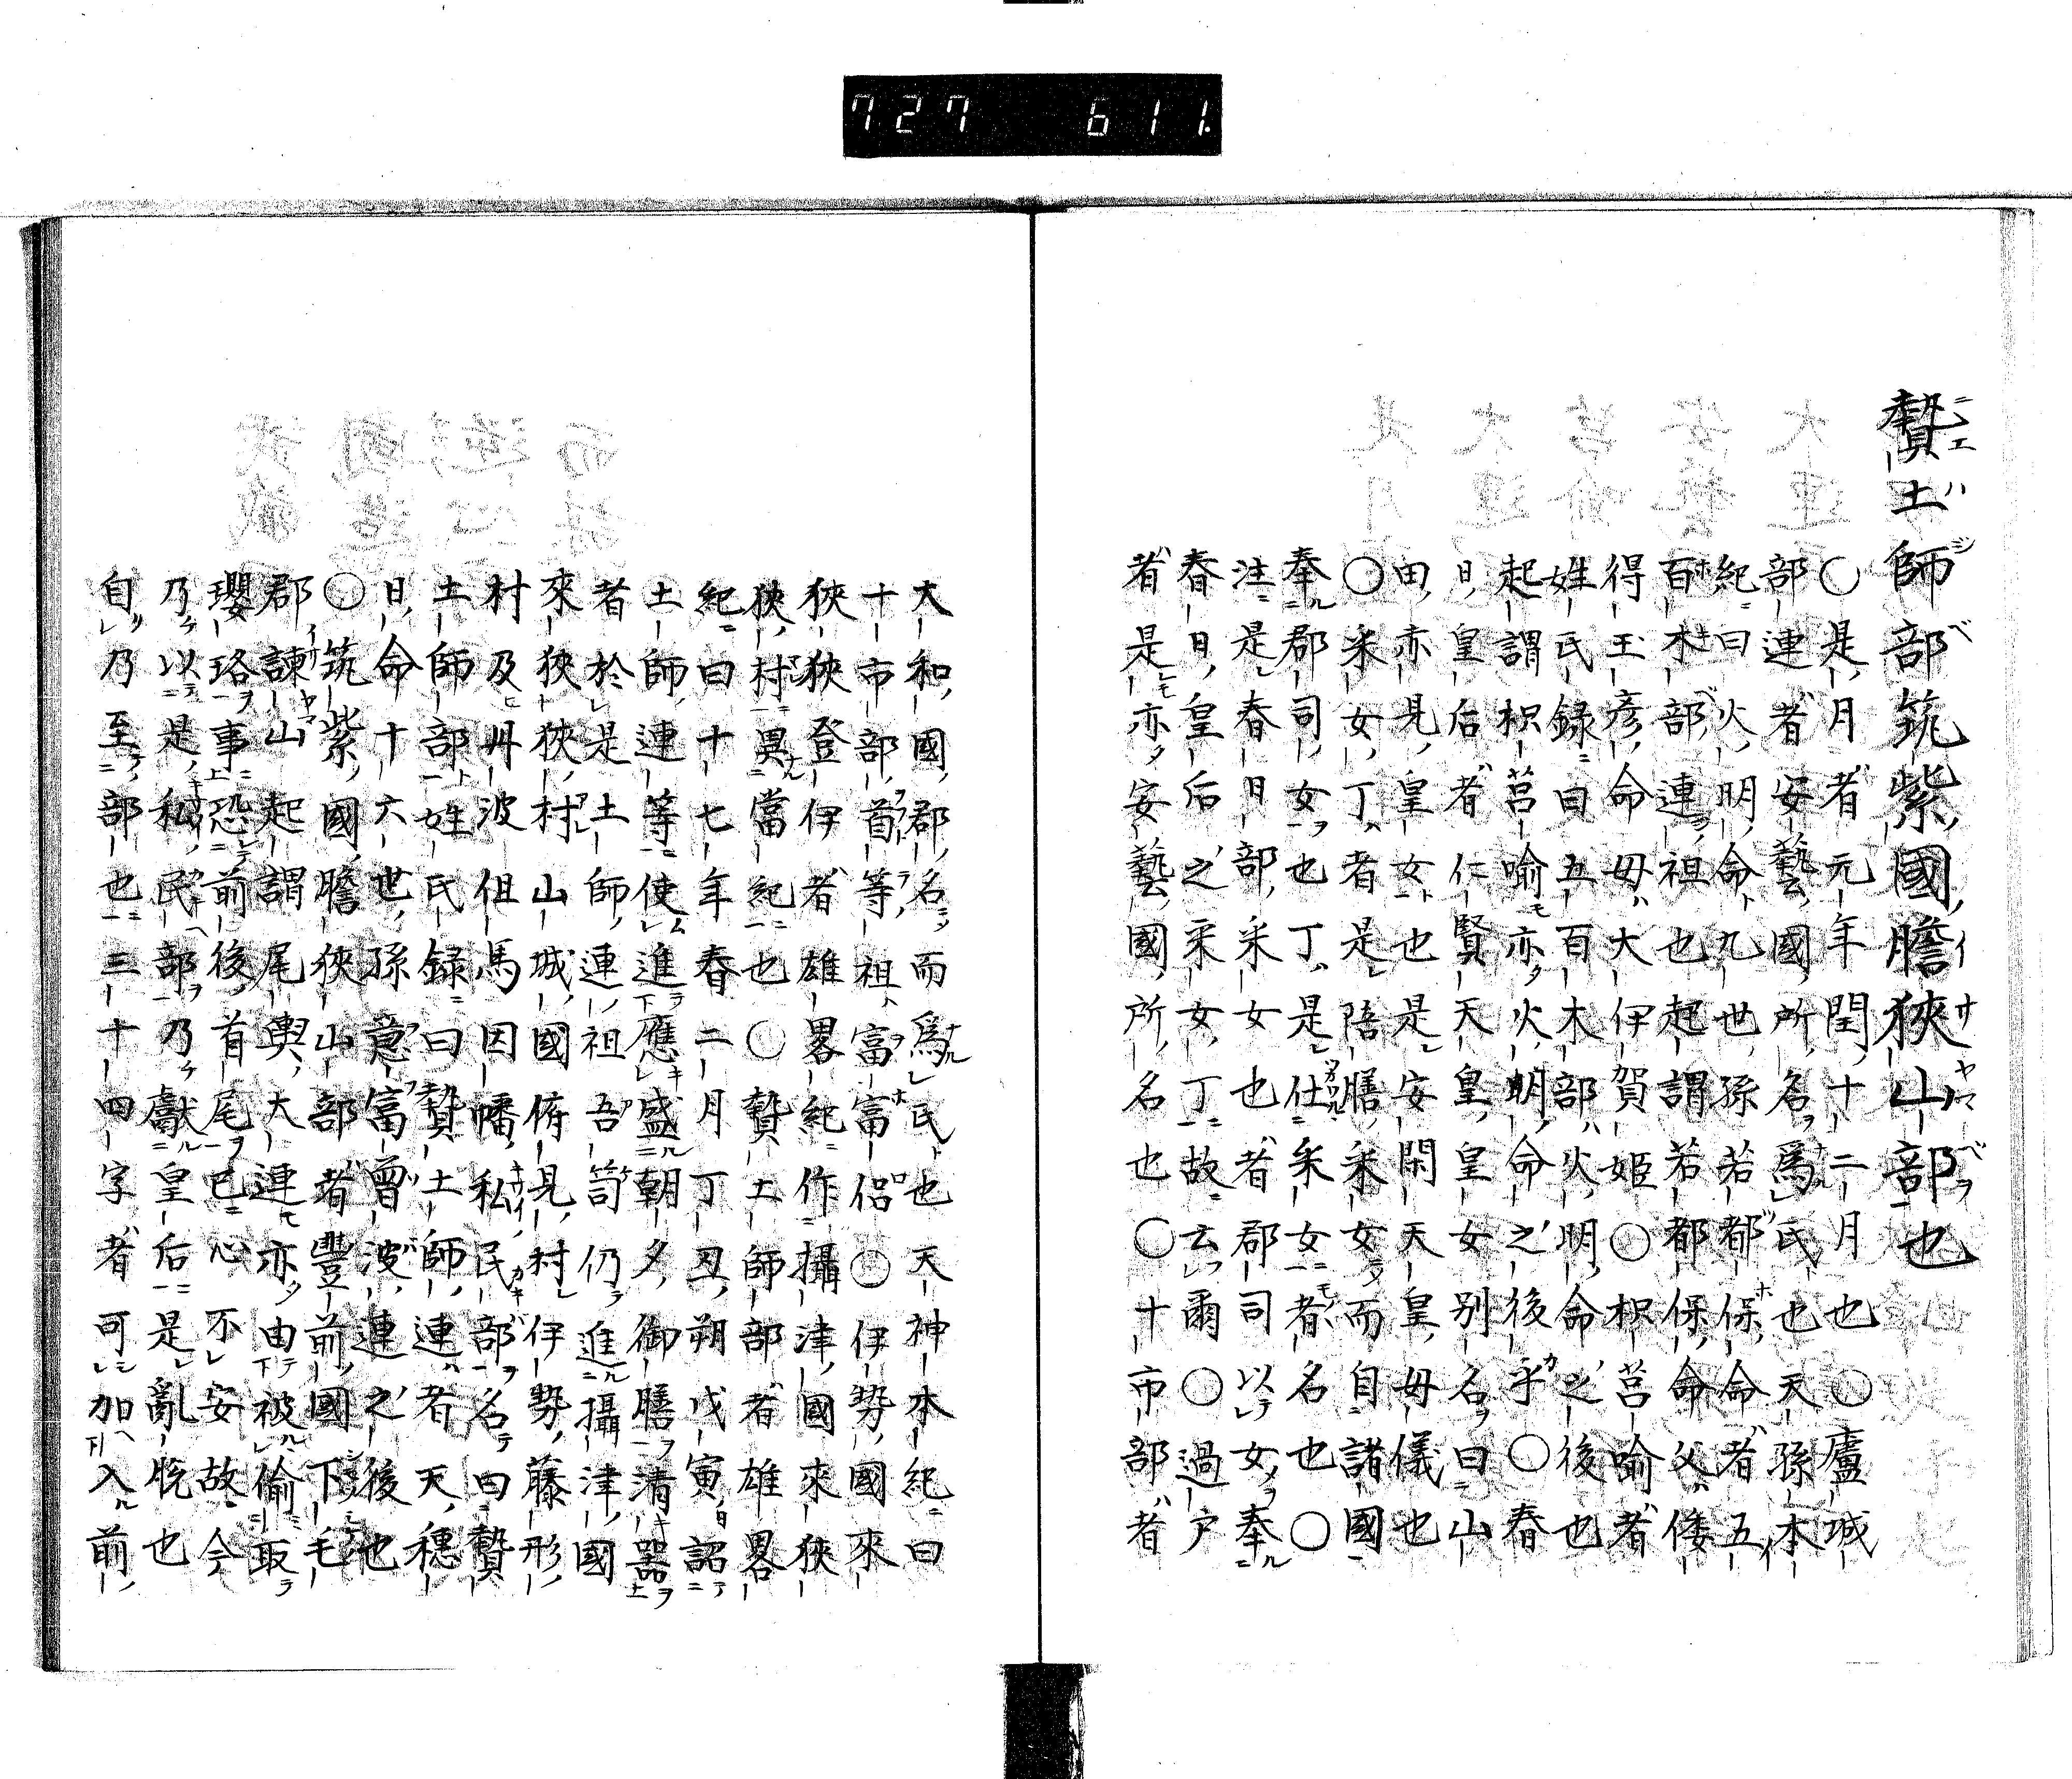 727 611.
贄土師部筑紫國膽狹山部也
○是月者元年閏十二月也○廬城
部連者安藝國所名爲氏也天孫本
紀曰火明命九世孫若都保命者五
百木部連祖也起謂若都保命父倭
得玉彦命母大伊賀姫○枳莒喻者
姓氏録曰五百木部火明命之後也
起謂枳莒喻亦火明命之後乎○春
日皇后者仁賢天皇皇女別名曰山
田亦見皇女也是安閑天皇母儀也
○采女丁者是陪膳采女而自諸國
奉郡司女也丁是仕采女者名也○
注是春日部采女也者郡司以女奉
春日皇后之采女丁故云爾○過戸
者是亦安藝國所名也○十市部者
大和國郡名而爲民也天神本紀曰
十市部首等祖富富侶○伊勢國來
狹狹登伊者雄畧紀作攝津國來狹
狹村異當紀也○贄土師部者雄畧
紀曰十七年春二月丁丑朔戊寅詔
土師連等使進應盛朝夕御膳清器
者於是土師連祖吾笥仍進攝津國
來狹狹村山城國俯見村伊勢藤形
村及丹波但馬因幡私民部名曰贄
土師部姓氏録曰贄土師連者天穗
日命十六世孫意富曾波連之後也
○筑紫國膽狹山部者豐前國下毛
郡諫山起謂尾輿大連亦由被偷取
瓔珞事恐前後首尾已心不安故今
乃以是私民部乃獻皇后是亂脱也
自乃至部也三十四字者可加入前